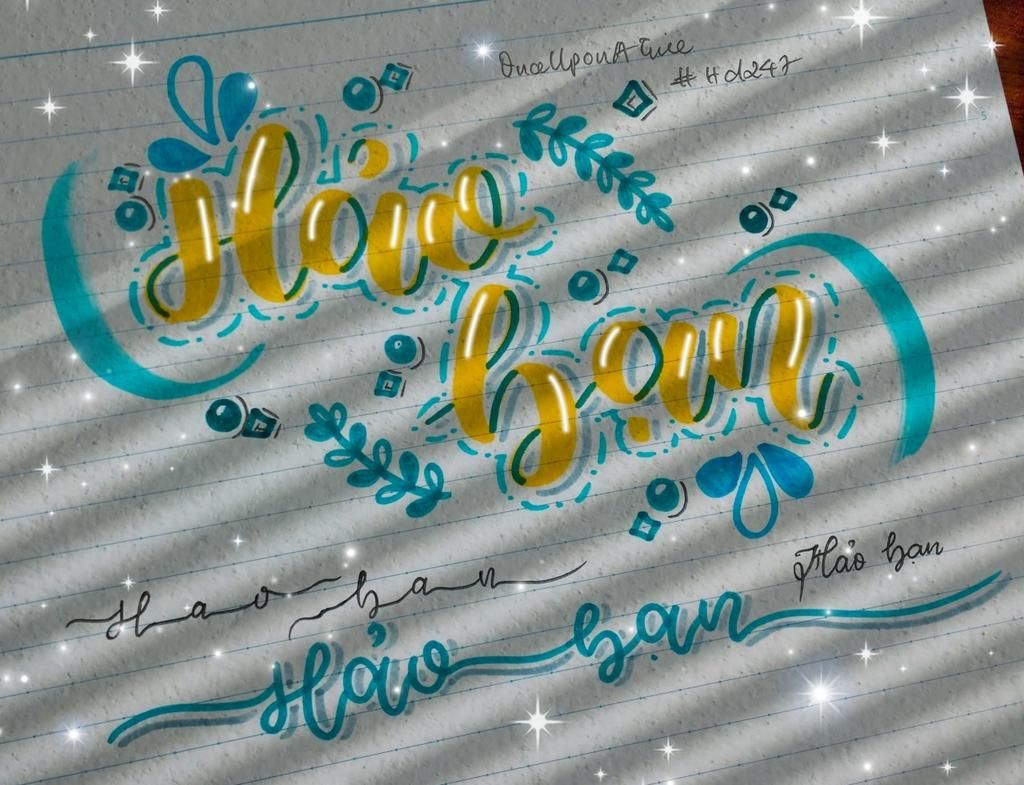 OnceUponATwice
#Hd247
Hảo
bạn
Hảo bạn
Hao ban
Hảo bạn